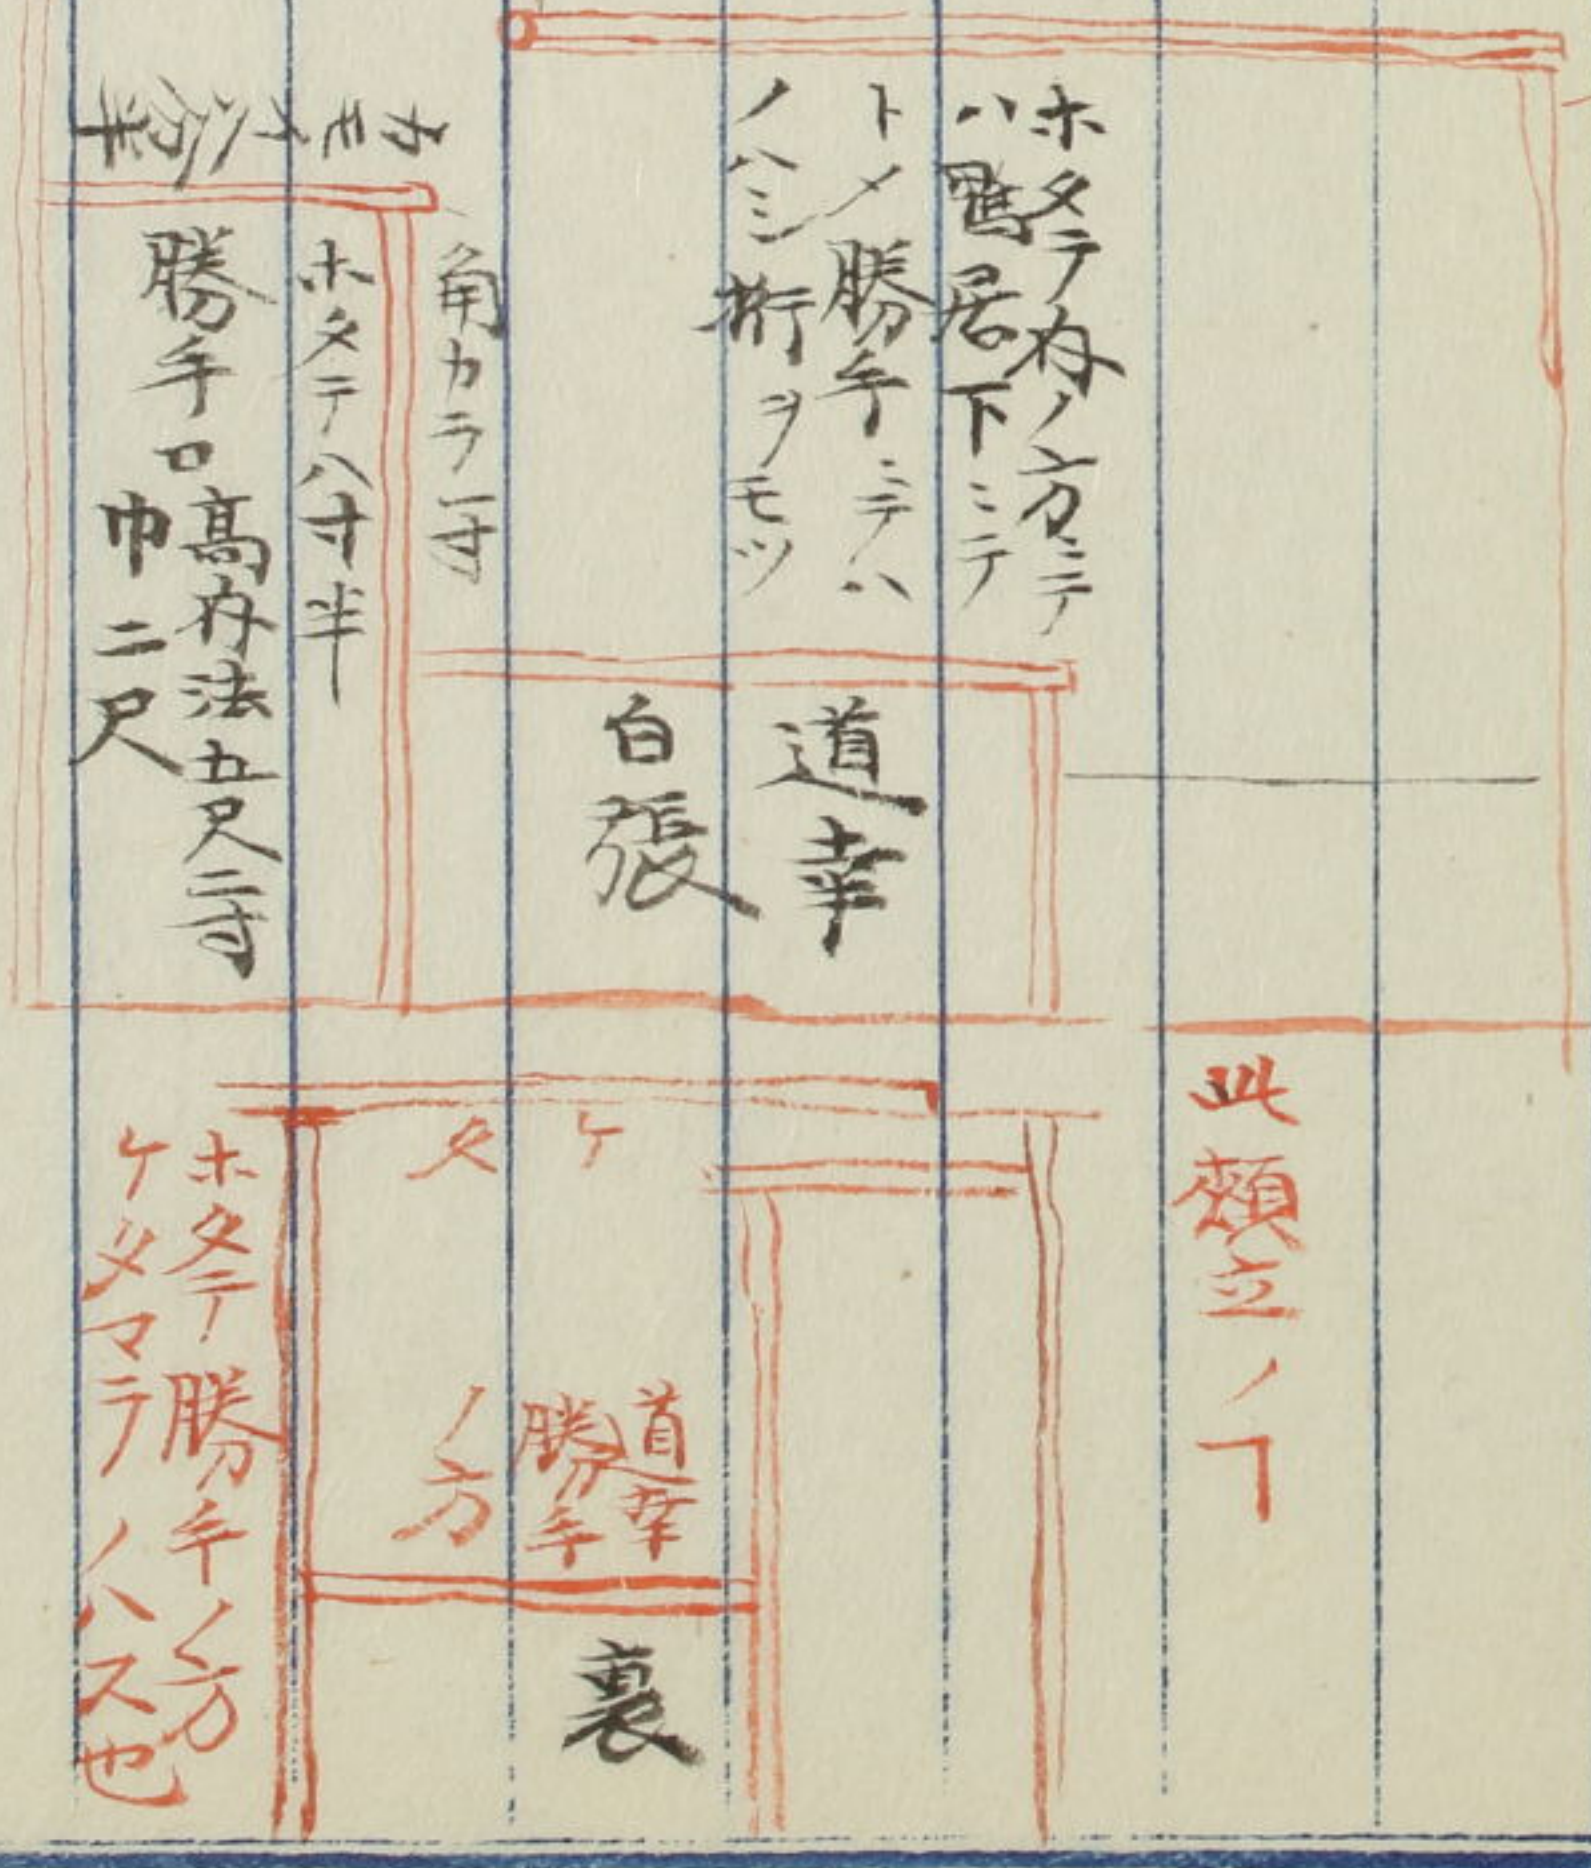 ホタテ内ノ方ニテ
ハ鴨居下ニテ
トメ勝手ニテハ
ノハシ桁ヲモツ
道幸
白張
角カラ一寸
カモイ八分半
ホタテ八寸半
勝手口高内法五尺二寸
巾二尺
此頬立ノヿ
ケタ
道幸
勝手
ノ方
裏
ホタテ勝手ノ方
ケタマテノハス也